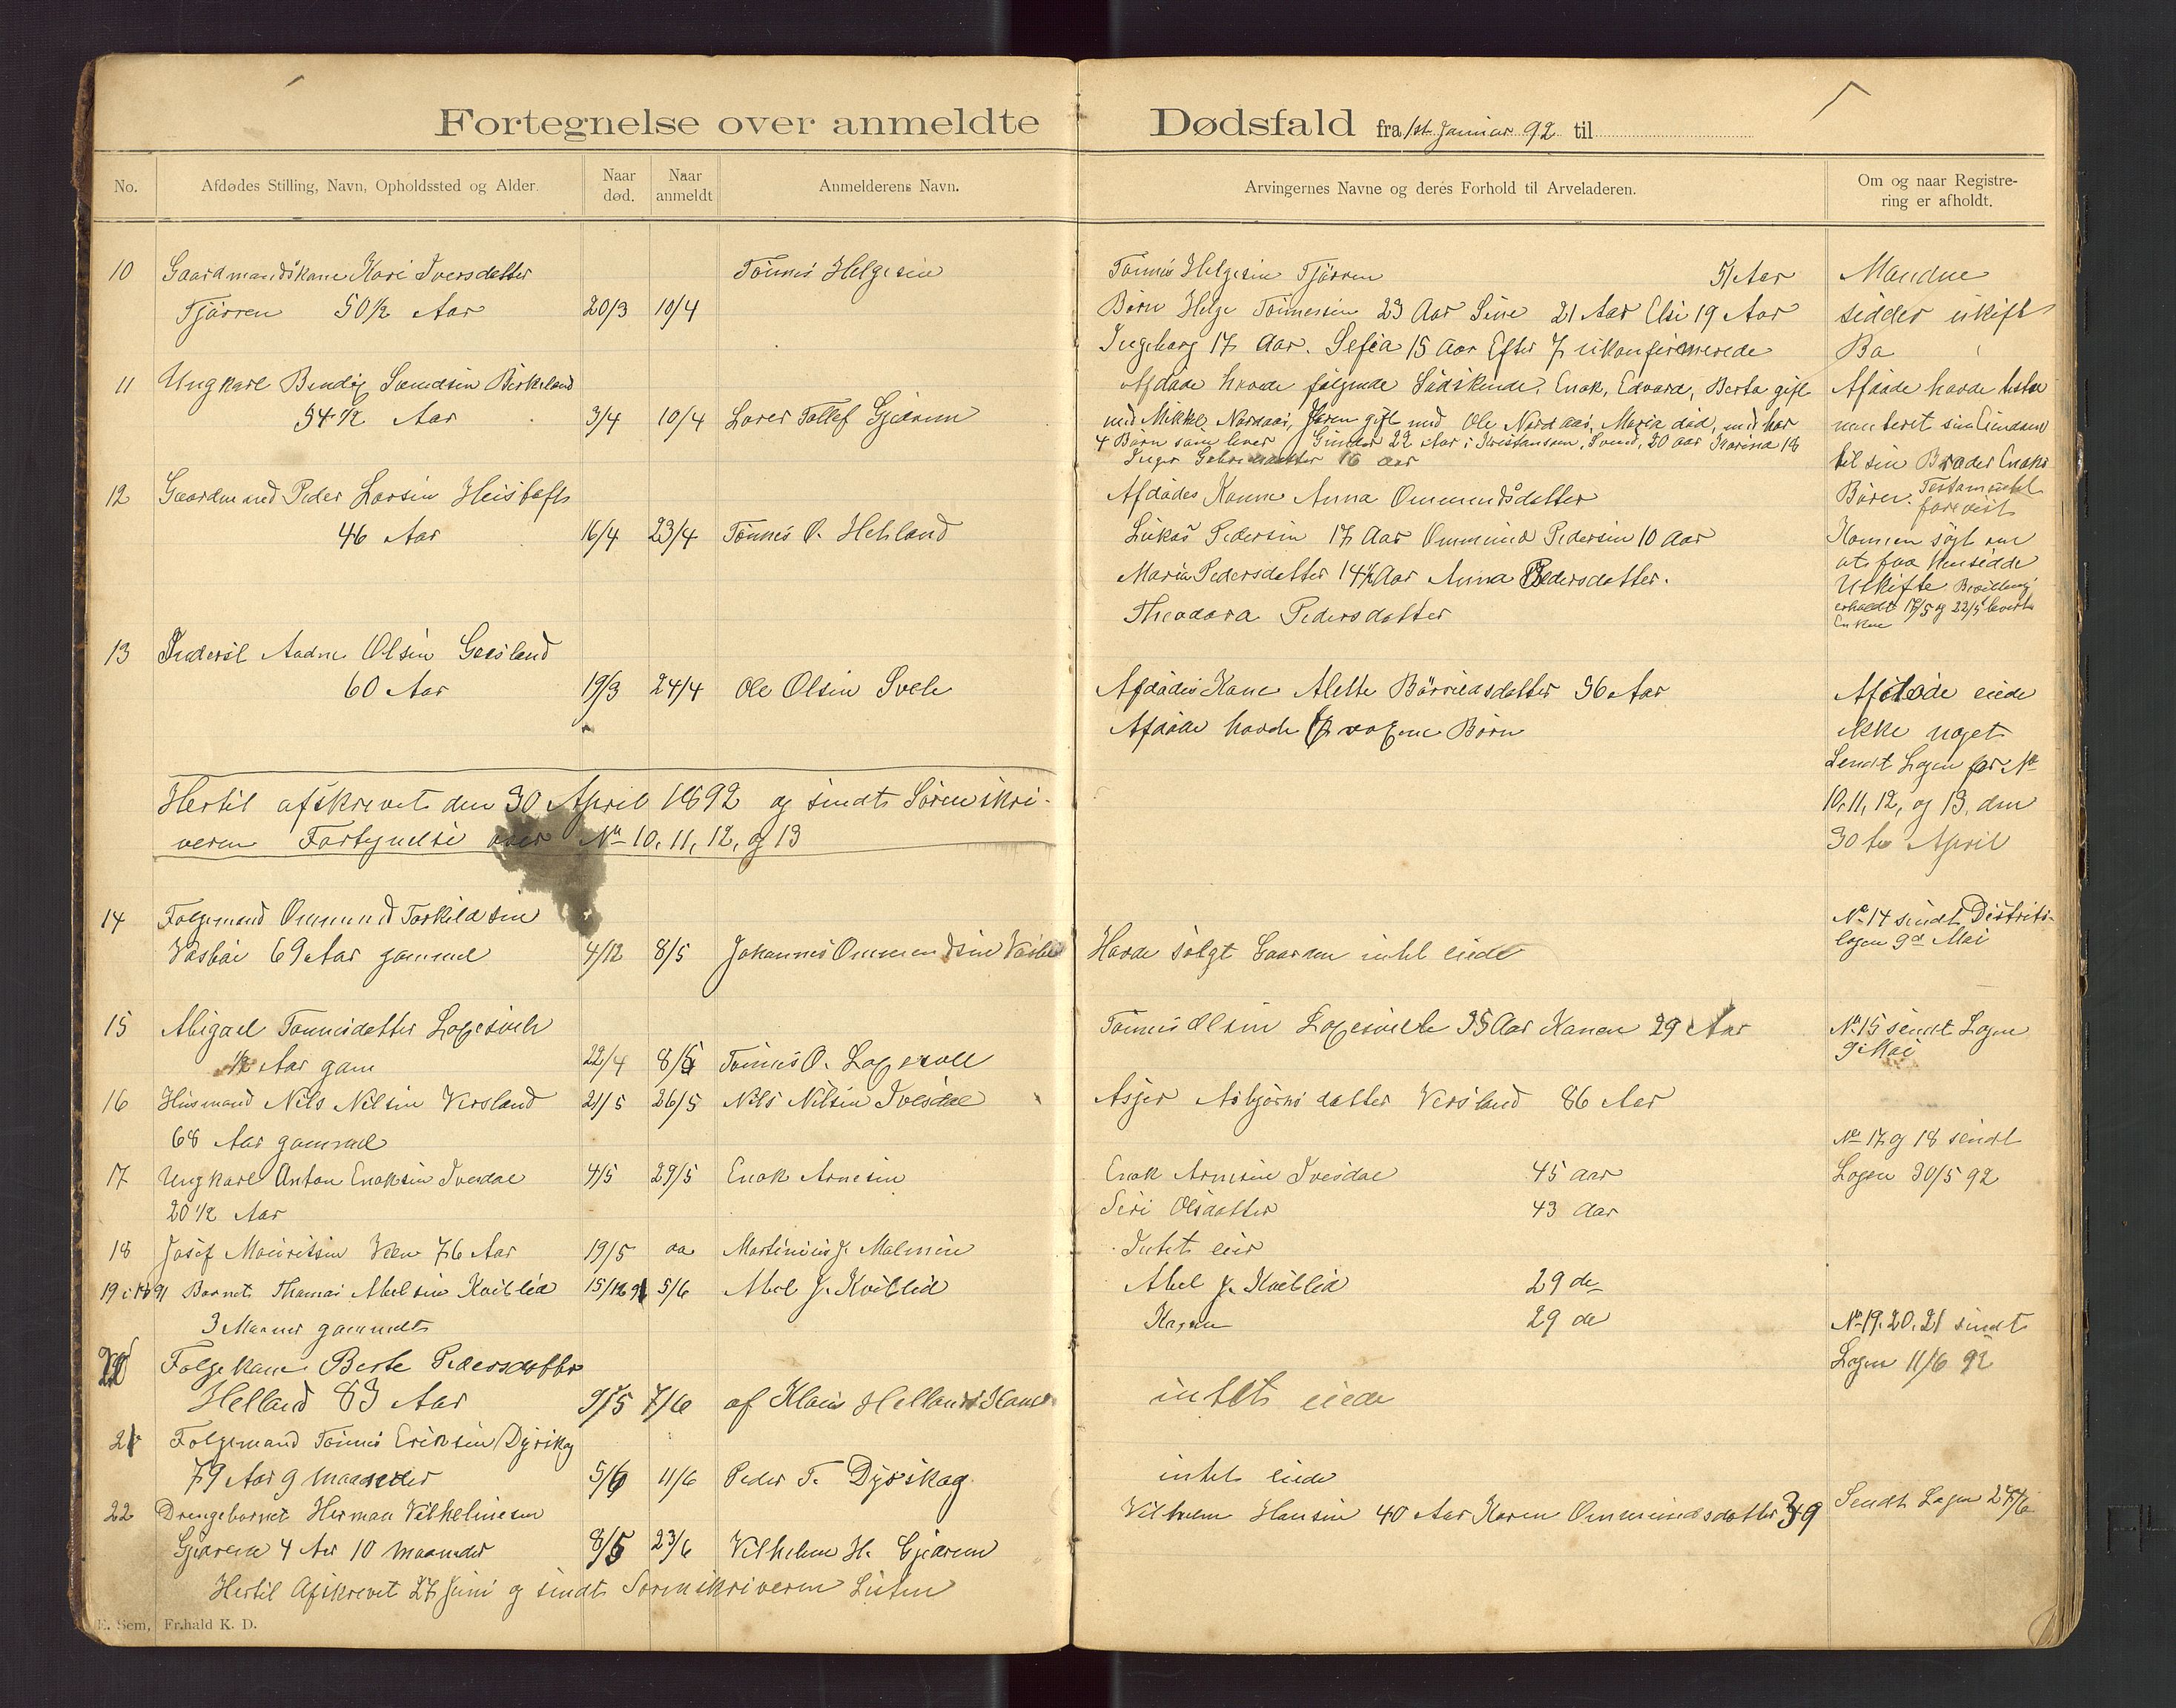 Fortegnelse over anmeldte Dødsfald fra 1st Januar 92 til
No.
Afdødes Stilling, Navn, Opholdssted og Alder.
Naar død.
Naar anmeldt
Anmelderens Navn.
Arvingernes Navne og deres Forhold til Arveladeren.
Om og naar Registre-
ring er afholdt.
10 Gaardmandskone Kari Iversdatter Tønnes Helgesen Tønnes Helgesen Tjørren 51 Aar Mandne
Tjørren 50 1/2 Aar 20/3 10/4 Børn Helge Tønnessen 23 Aar Sine 21 Aar Elsi 19 Aar sidder uskift
Ingeborg 17 Aar. Sefia 15 Aar Efter 7 ukonfirmerede Bø
11 Ungkarl Bendix Birkeland Afdøde havde følgende Sødskende, Enok, Edvard, Berta gift Afdøde havde
54 1/2 Aar 3/4 10/4 Tollef Gjerem med Mikkel Nordaas, Karen gift med Ole Nordaas, Maria død, med har
4 Børn som lever Gunder 22 Aar i Kristansan, Svend, 20 aar Karina 18
Inger 16 aar til sin Broder Enoks
12 Gaardmand Peder Larsen Heistoft Afdødes Kone Anna Ommundsdatter Børn. Testamentet
forevist
46 Aar 16/4 23/4 Tønnes O. Lukas Pedersen 17 Aar Ommund Pedersen 10 Aar Konen søgt om
at faa hensidde
Maria Pedersdatter 14 1/2 Aar Anna Pedersdatter. Uskifte Bevilling
erholdt 17/5 og 22/5
Theodora Pedersdatter Enken
13 Aadne Olsen 
60 Aar 19/3 24/4 Ole Olsen Svele Afdødes Kone Alette Børresdatter 36 Aar Afdøde eiede
Afdøde havde voxne Børn ikke noget
Sendt Logen for No
Hertil afskrevet den 30 April 1892 og sendt Sørenskri- 10, 11, 12, og 13, den
veren Fortegnelse over No 10, 11, 12, og 13 30te April
14 Folgemand Ommund Torkildsen No 14 sendt Distrikts-
logen 9d Mai
Vasbø 69 Aar gammel 4/12 8/5 Johannes Ommundsen Vasbø Havde solgt Gaarden intet eiede
15 Abigael Tønnesdatter Tønnes Olsen 35 Aar Konen 29 Aar No 15 sendt Logen
9 Mai
1/2 Aar gam 22/4 8/5 Tønnes O.
16 Husmand Nils Nilsen Versland 21/5 26/5 Nils Nilsen Ivesdal Asjer Asbjørnsdatter Versland 86 Aar
68 Aar gammel No 17 og 18 sendt
17 Ungkarl Anton Enoksen Ivesdal 4/5 29/5 Enok Arnesen Enok Arnesen Ivesdal 45 aar Logen 30/5 92
20 1/2 Aar Siri Olsdatter 43 aar
18 Josef Mauritsen 76 Aar 19/5 aa Martinius J. Malmin Intet eier
19 Barnet Thomas Abelsen Kvitlid 15/12 91 5/6 Abel J. Kvitlid Abel J. Kvitlid 29 do
3 Maaner gammelt Karen 29 do No 19. 20. 21 sendt
Folgekone Berte Pedersdatter Logen 11/6 92
Helland 83 Aar 9/5 7/6 af Klaus Hellands Kone intet eiede
21 Folgemand Tønnes Eriksen Dyrskog
79 Aar 9 maaneder 5/6 11/6 Peder T. Dyrskog intet eiede
22 Drengebarnet Herman Vilhelmesen Vilhelm Hansen 40 Aar Karen Ommundsdatter 39 Sendt Logen 27/6
Gjerem 4 Aar 10 maaneder 8/5 23/6 Vilhelm H. Gjerem
Hertil Afskrevet 27 Juni og sendt Sorenskriveren Listen
E. Sem, Fr.hald K. D.